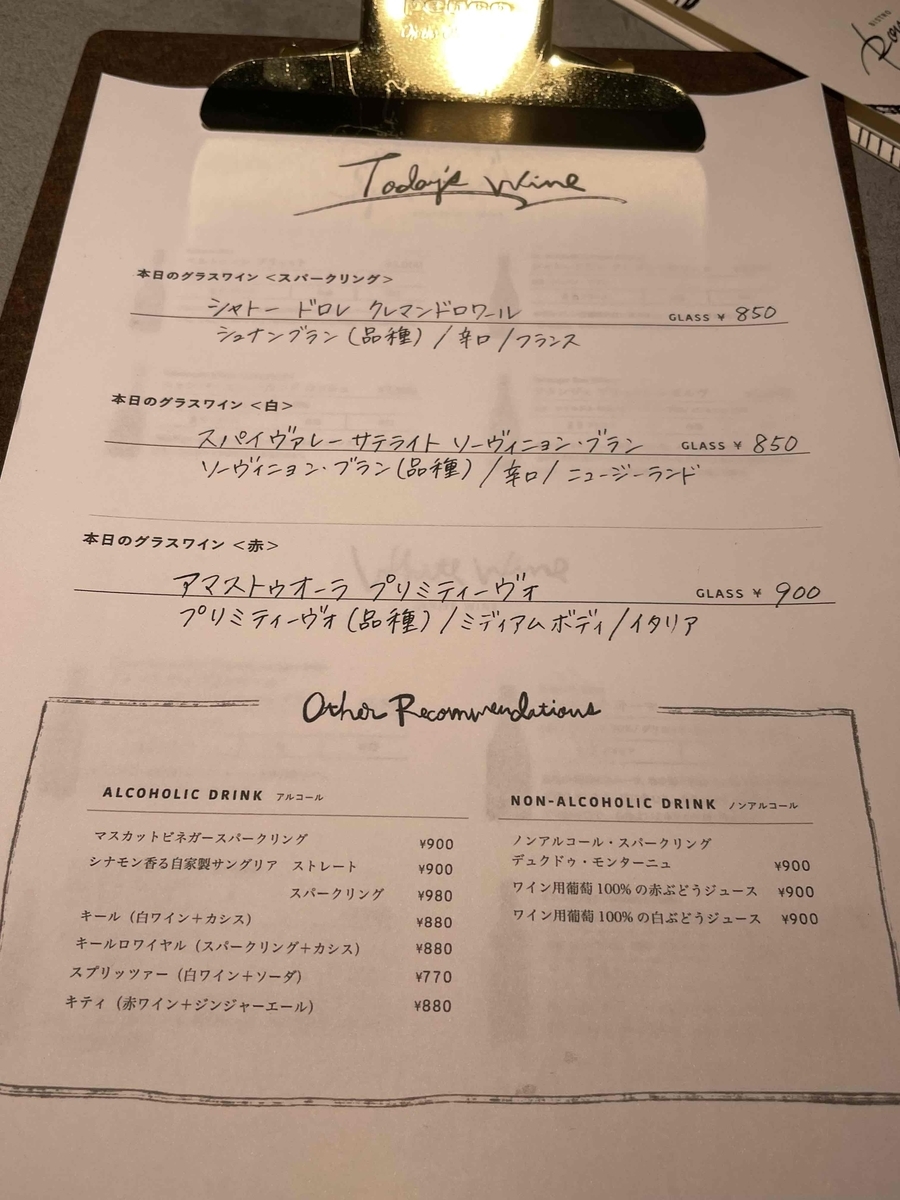 BISTRO
Today's Wine
本日のグラスワイン <スパークリング>
シャトー ドロレ クレマンドロワール GLASS ¥ 850
シュナンブラン (品種) / 辛口 / フランス
本日のグラスワイン <白>
スパイヴァレー サテライト ソーヴィニョン・ブラン GLASS ¥ 850
ソーヴィニョン・ブラン (品種) / 辛口 / ニュージーランド
本日のグラスワイン <赤>
アマストゥオーラ プリミティーヴォ GLASS ¥ 900
プリミティーヴォ (品種) / ミディアムボディ / イタリア
Other Recommendations
ALCOHOLIC DRINK アルコール
マスカットビネガースパークリング ¥900
シナモン香る自家製サングリア ストレート ¥900
スパークリング ¥980
キール (白ワイン+カシス) ¥880
キールロワイヤル (スパークリング+カシス) ¥880
スプリッツァー (白ワイン+ソーダ) ¥770
キティ (赤ワイン+ジンジャーエール) ¥880
NON-ALCOHOLIC DRINK ノンアルコール
ノンアルコール・スパークリング
デュクドゥ・モンターニュ ¥900
ワイン用葡萄 100% の赤ぶどうジュース ¥900
ワイン用葡萄 100% の白ぶどうジュース ¥900